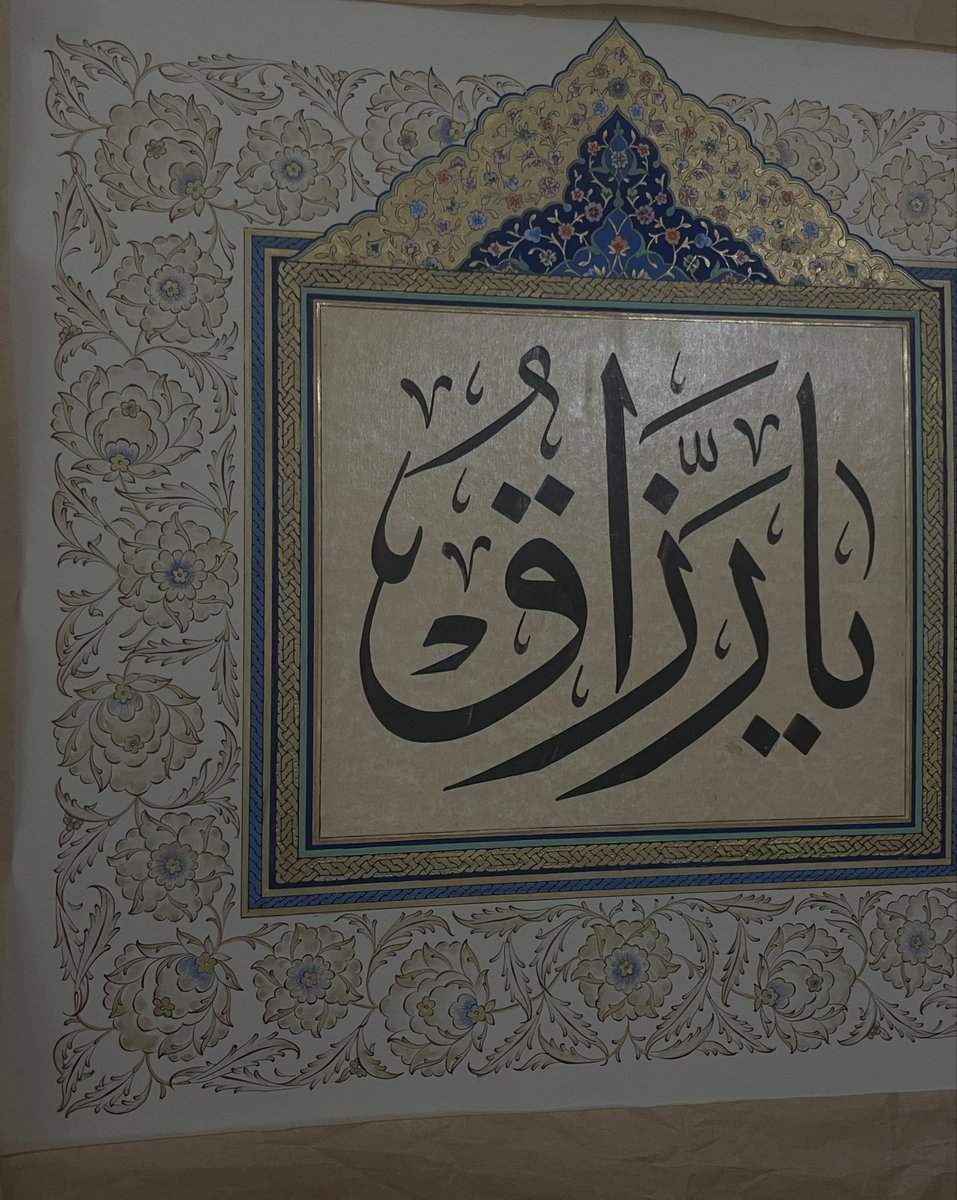 يا رَزَّاقُ